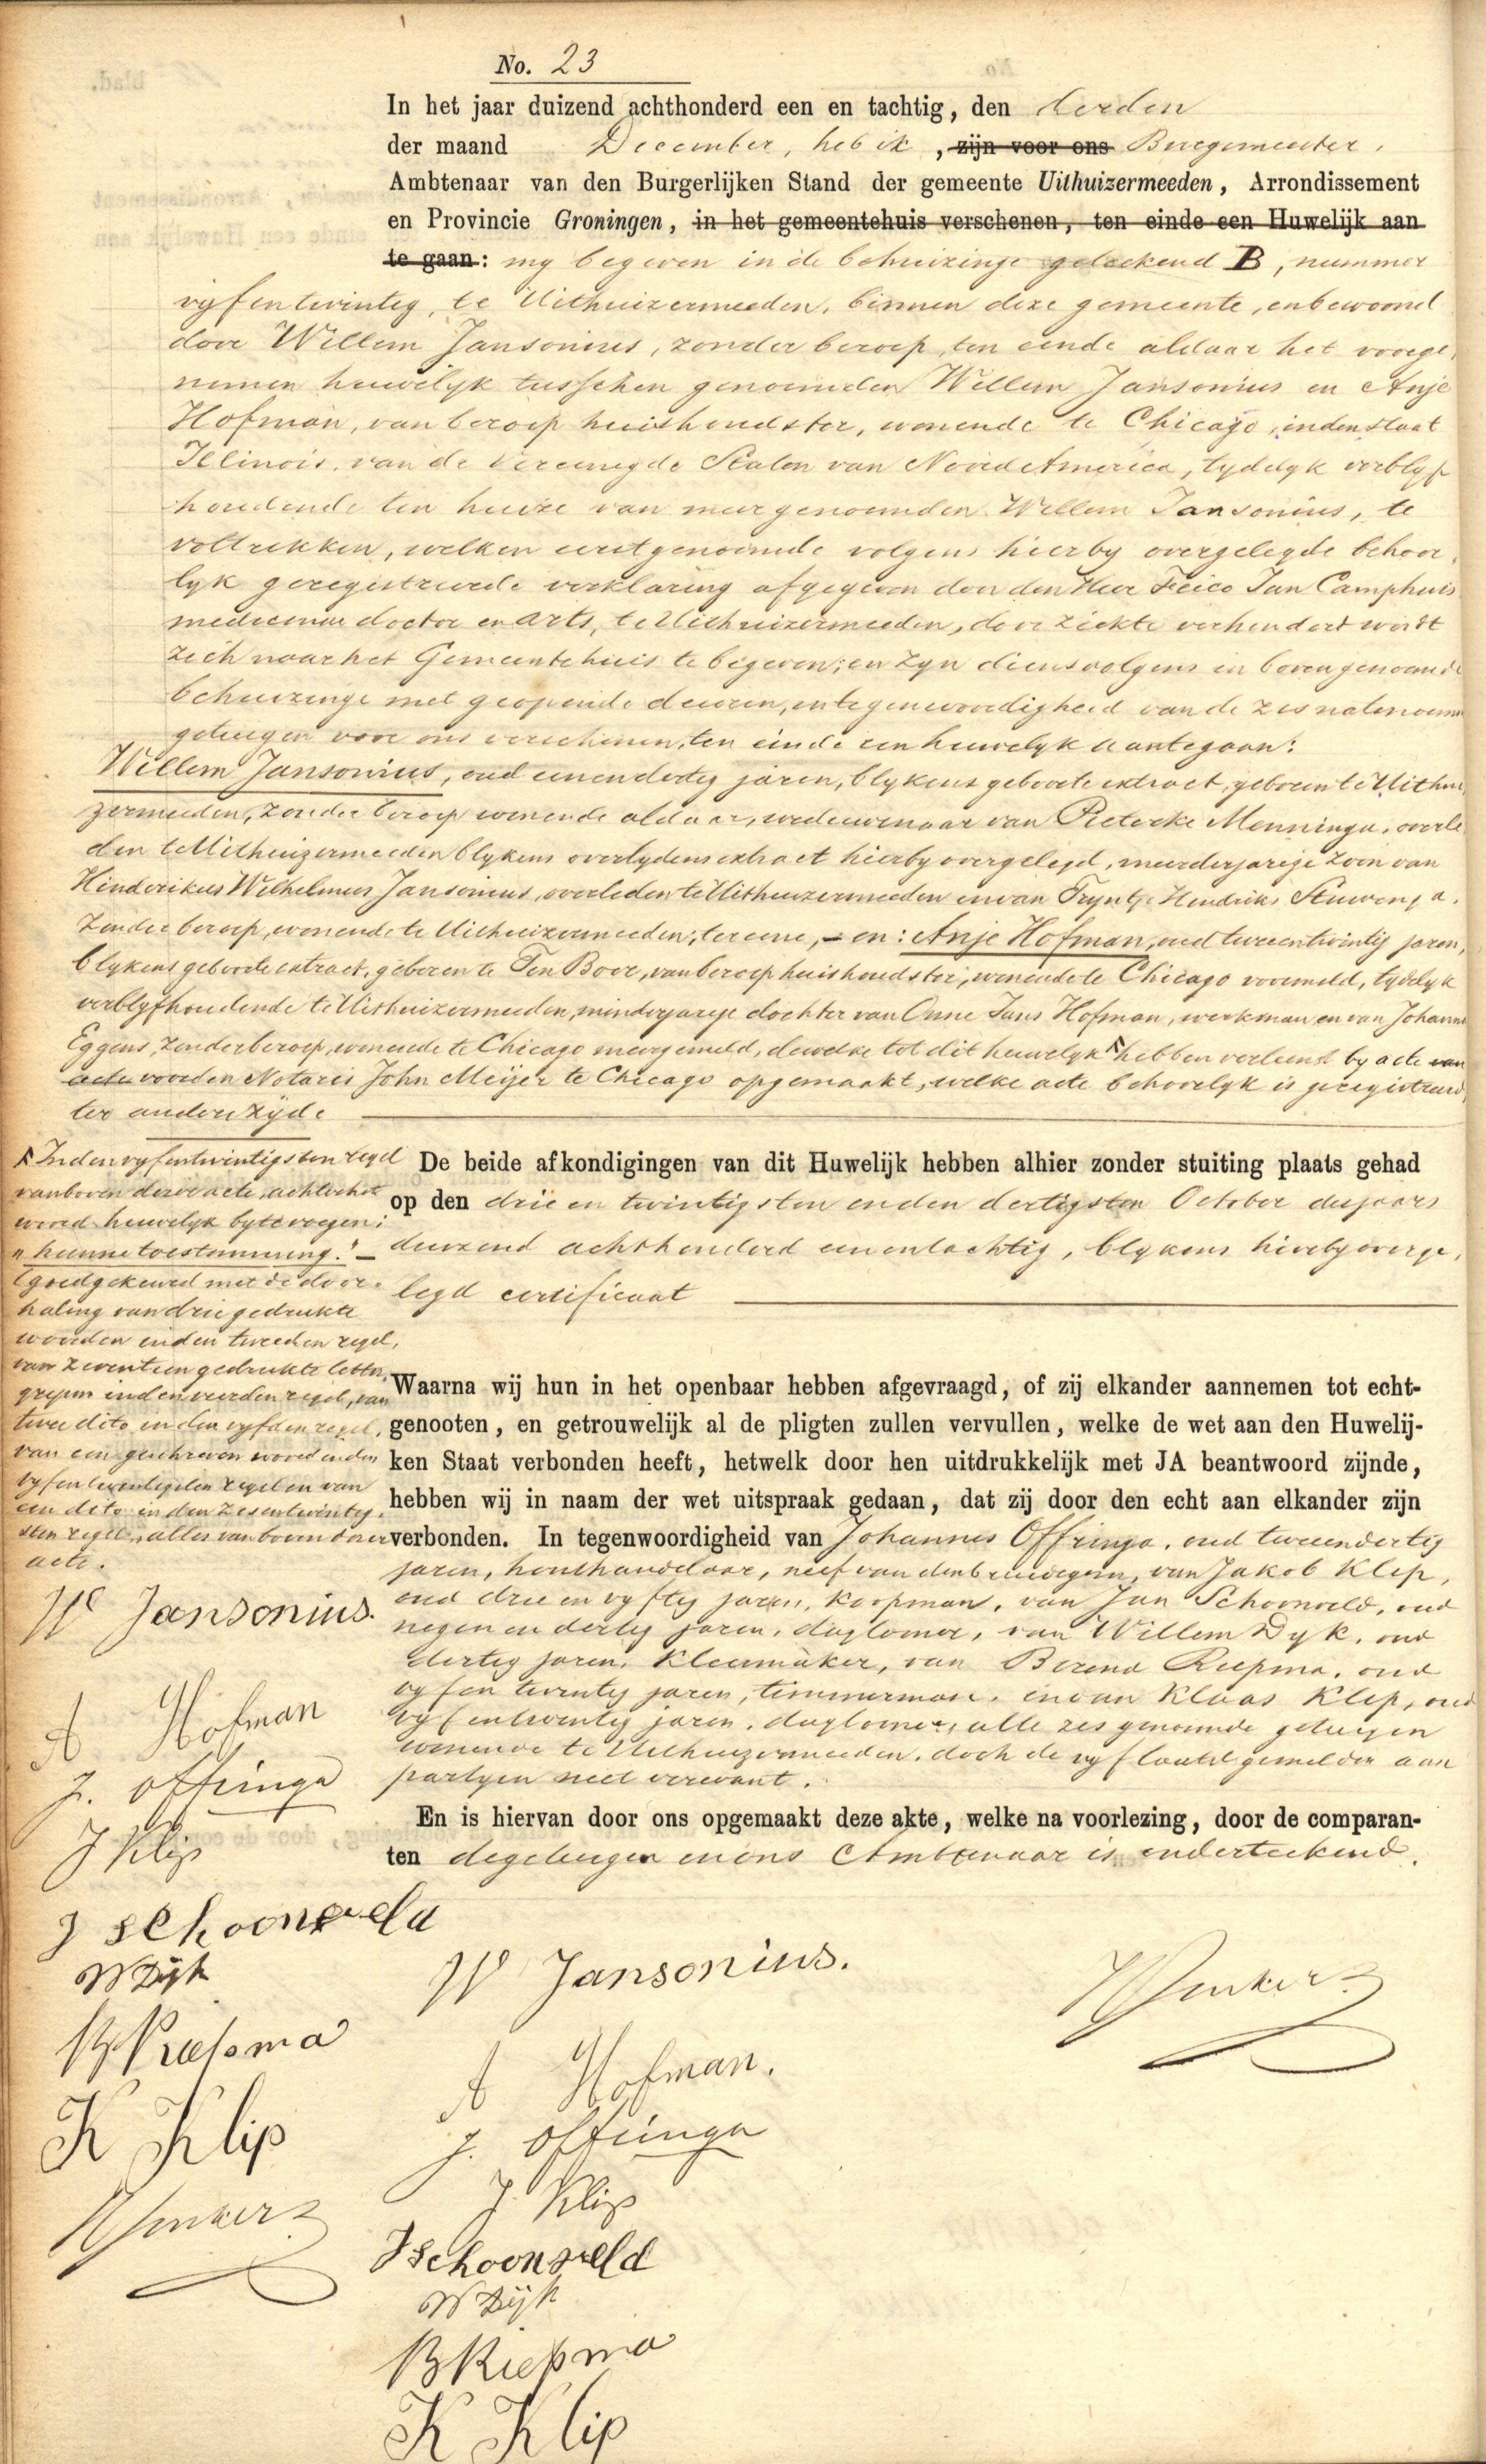 No. 23
In het jaar duizend achthonderd een en tachtig, den derden
der maand December, heb ik, zijn voor ons Burgemeester,
Ambtenaar van den Burgerlijken Stand der gemeente Uithuizermeeden, Arrondissement
en Provincie Groningen, in het gemeentehuis verschenen, ten einde een Huwelijk aan
te gaan: my begeven in de behuizinge geteekend B, nummer
vyfentwintig, te Uithuizermeeden, binnen deze gemeente, en bewoond
door Willem Jansonius, zonder beroep, ten einde aldaar het voorge
nomen huwelyk tusschen genoemden Willem Jansonius en Anje
Hofman, van beroep huishoudster, wonende te Chicago, in den staat
Illinois, van de Vereenigde Staten van Noord America, tydelyk verblyf
houdende ten huize van meergenoemden Willem Jansonius, te
voltrekken, welken eerstgenoemde volgens hierby overgelegde behoor
lyk geregistreerde verklaring afgegeven door den Heer Feico Jan Camphuis
medicinae doctor en arts, te Uithuizermeeden, door ziekte verhinderd wordt
zich naar het Gemeentehuis te begeven; en zyn diensvolgens in bovengenoemde
behuizinge met geopende deuren, in tegenwoordigheid van de zes natenoemen
getuigen voor ons verschenen, ten einde een huwelyk aantegaan:
Willem Jansonius, oud eenendertig jaren, blykens geboorte extract, geboren te Uithui
zermeeden, zonder beroep wonende aldaar, weduwenaar van Pieterke Menninga, overle
den te Uithuizermeeden blykens overlydens extract hierby overgelegd, meerderjarige zoon van
Hinderikus Wilhelmus Jansonius, overleden te Uithuizermeeden en van Tryntje Hendriks Stuwenga,
zonder beroep, wonende te Uithuizermeeden; ter eene, – en: Anje Hofman, oud tweeentwintig jaren,
blykens geboorte extract, geboren te Ten Boer, van beroep huishoudster, wonende te Chicago voormeld, tydelyk
verblyfhoudende te Uithuizermeeden, minderjarige dochter van Onne Jans Hofman, werkman en van Johanna
Eggens, zonder beroep, wonende te Chicago meergemeld, dewelke tot dit huwelyk hebben verleend by acte van
acte voor den Notaris John Meijer te Chicago opgemaakt, welke acte behoorlyk is geregistreerd,
ter anderezyde
Inden vyfentwintigsten regel
van boven dezer acte, achter het
woord huwelyk bytevoegen:
"hunne toestemming." –
goedgekeurd met de door-
haling van drie gedrukte
woorden in den tweeden regel,
van zeventien gedrukte letter
grepen in den vierden regel, van
twee dito in den vyfden regel,
van een geschreven woord in den
vyfentwintigsten regel en van
een dito in den zesentwintig
sten regel, alles van boven dezer
acte.
De beide afkondigingen van dit Huwelijk hebben alhier zonder stuiting plaats gehad
op den drie en twintigsten en den dertigsten October des jaars
duizend achthonderd een en tachtig, blykens hierby overge
legd certificaat
Waarna wij hun in het openbaar hebben afgevraagd, of zij elkander aannemen tot echt-
genooten, en getrouwelijk al de pligten zullen vervullen, welke de wet aan den Huwelij-
ken Staat verbonden heeft, hetwelk door hen uitdrukkelijk met JA beantwoord zijnde,
hebben wij in naam der wet uitspraak gedaan, dat zij door den echt aan elkander zijn
verbonden. In tegenwoordigheid van Johannes Offringa, oud tweeendertig
jaren, houthandelaar, neef van den bruidegom, van Jakob Klip,
oud drie en vyftig jaren, koopman, van Jan Schoonveld, oud
negen en dertig jaren, daglooner, van Willem Dyk, oud
dertig jaren, kleermaker, van Berend Riepma, oud
vyf en twintig jaren, timmerman, en van Klaas Klip, oud
vyfentwintig jaren, daglooner, alle zes genoemde getuigen
wonende te Uithuizermeeden, doch de vyf laatstgemelden aan
partyen niet verwant.
En is hiervan door ons opgemaakt deze akte, welke na voorlezing, door de comparan-
ten de getuigen en ons Ambtenaar is onderteekend.
W Jansonius.
A Hofman
J. Offringa
J Klip
J Schoonveld
W Dijk
B Riepma
K Klip
W Jansonius.
A Hofman.
J. Offringa
J. Klip
J Schoonveld
W Dijk
B Riepma
K Klip